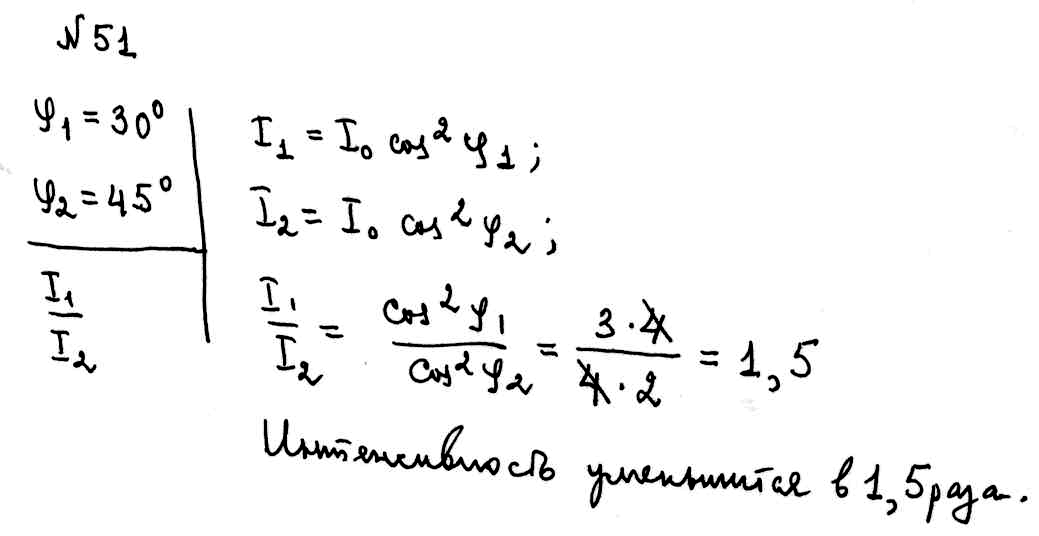 N 51
φ₁ = 30°
φ₂ = 45°
I₁/I₂
I₁ = I₀ cos² φ₁ ;
I₂ = I₀ cos² φ₂ ;
I₁/I₂ = cos² φ₁ / cos² φ₂ = 3 · 4 / 4 · 2 = 1,5
Интенсивность уменьшится в 1,5 раза.